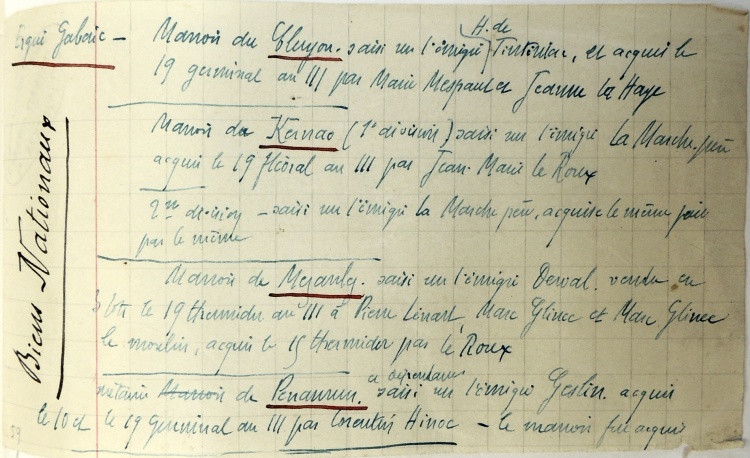 Ergué Gabéric — Manoir du Cleuyou. saisi sur l'émigré H. de Tinténiac, et acquis le
19 germinal an III par Marie Mespaul et Jeanne La Haye
Manoir de Kernao (1e division) saisi sur l'émigré La Marche père
acquis le 19 floréal an III par Jean Marie le Roux
2me division — saisi sur l'émigré la Marche père, acquise le même jour
par le même
Manoir de Mezanlez. saisi sur l'émigré Derval. vendu en
3 lots le 19 thermidor an III à Pierre Lénart, Marc Glinec et Marc Glinec
le moulin, acquis le 15 thermidor par le Roux
métairie Manoir de Penanrun. et dépendances saisi sur l'émigré Geslin. acquis
le 10 et le 19 germinal an III par Corentin Hinoc — le manoir fut acquis
Biens Nationaux
59